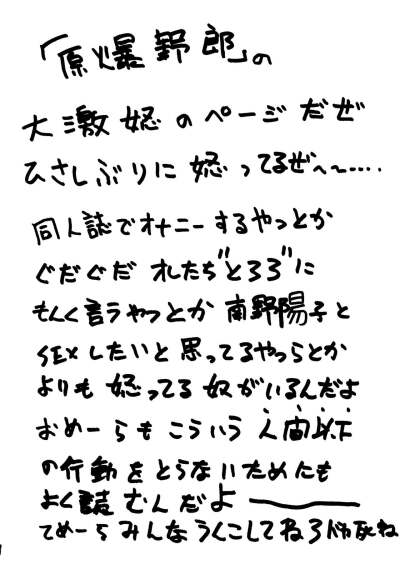 「原爆野郎」の
大激怒のページだぜ
ひさしぶりに怒ってるぜ〜〜‥‥.
同人誌でオナニーするやつとか
ぐだぐだオレたち"とろろ"に
もんく言うやつとか南野陽子と
SEXしたいと思ってるやつらとか
よりも怒ってる奴がいるんだよ
おめーらもこういう人間以下
の行動をとらないためにも
よく読むんだよ――
てめーらみんなうんこしてねろ死ね